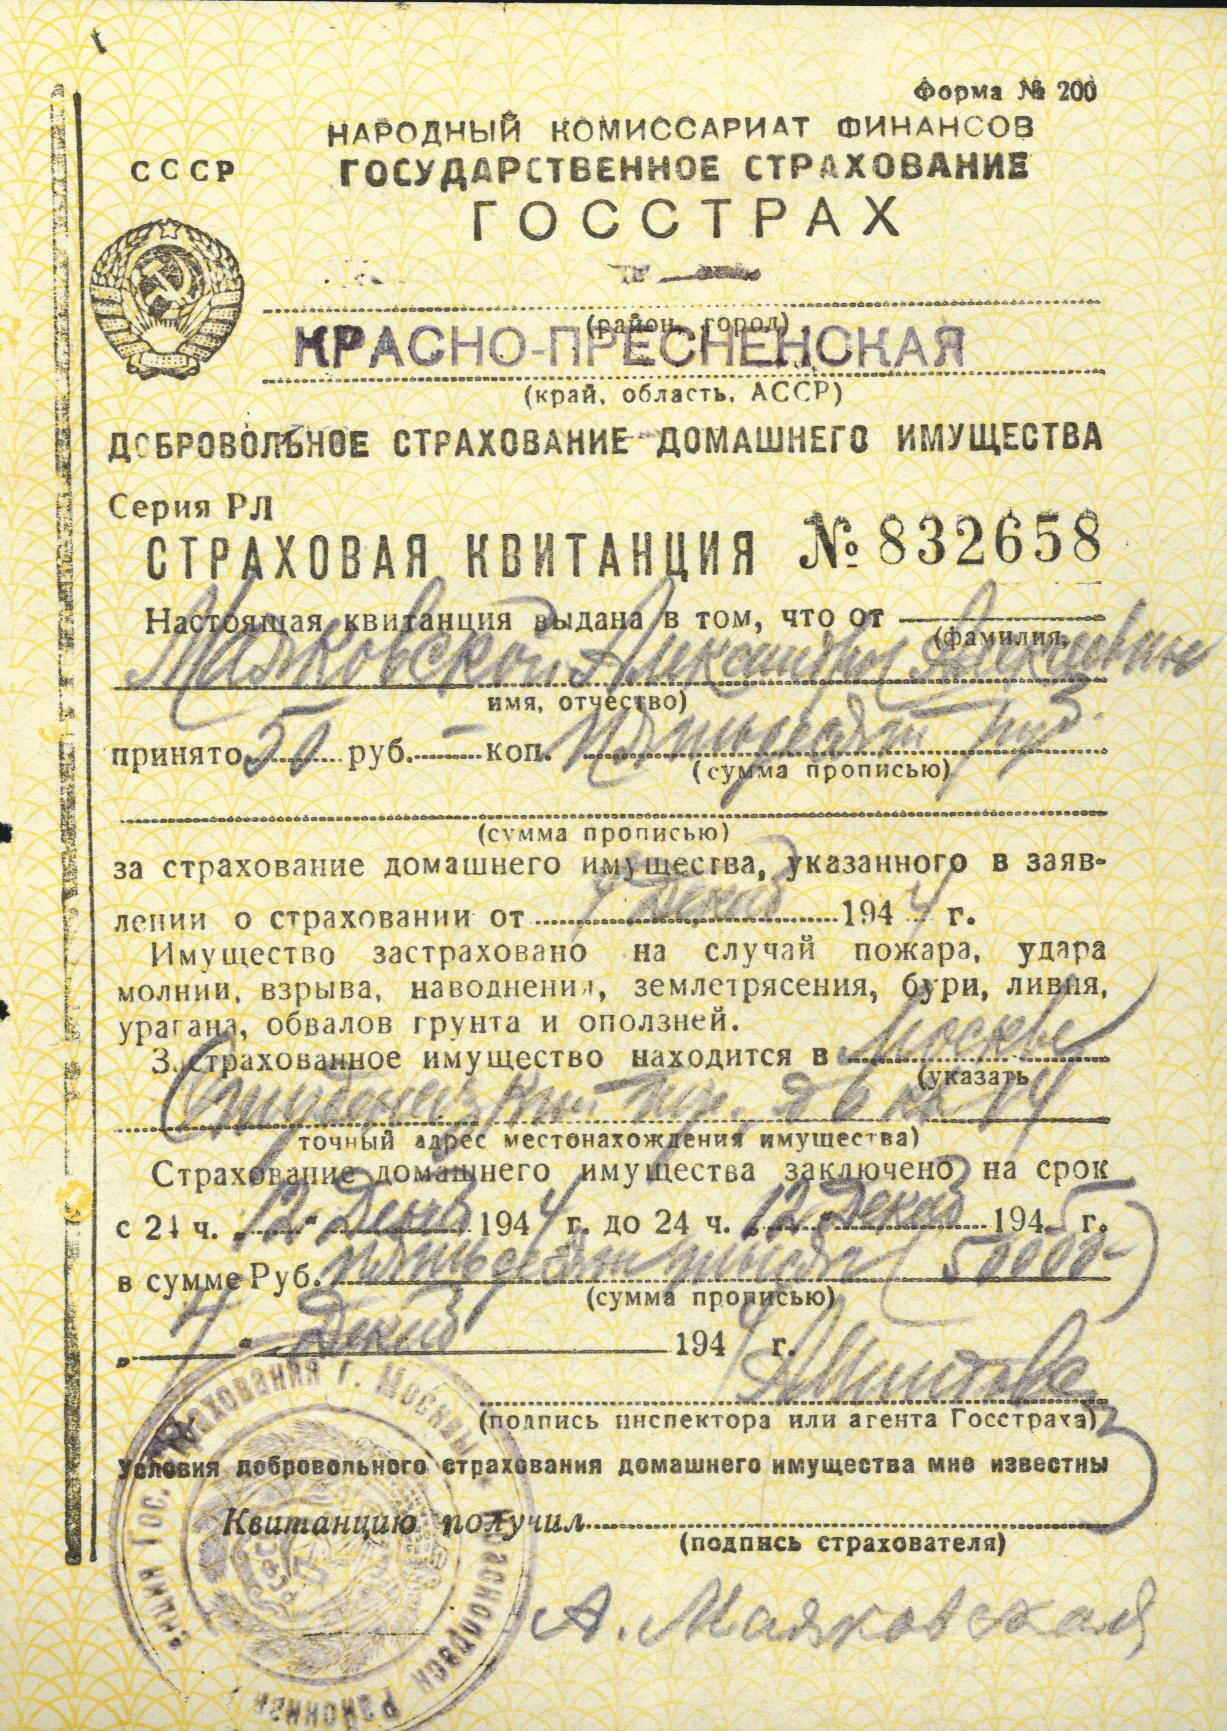 Форма № 200
НАРОДНЫЙ КОМИССАРИАТ ФИНАНСОВ
СССР
ГОСУДАРСТВЕННОЕ СТРАХОВАНИЕ
ГОССТРАХ
(район, город)
КРАСНО-ПРЕСНЕНСКАЯ
(край, область, АССР)
ДОБРОВОЛЬНОЕ СТРАХОВАНИЕ ДОМАШНЕГО ИМУЩЕСТВА
Серия РЛ
СТРАХОВАЯ КВИТАНЦИЯ № 832658
Настоящая квитанция выдана в том, что от
(фамилия,
Маяковской Александры Алексеевны
имя, отчество)
принято 50 руб. — коп. Пятьдесят руб.
(сумма прописью)
(сумма прописью)
за страхование домашнего имущества, указанного в заяв-
лении о страховании от 4 декаб 1944 г.
Имущество застраховано на случай пожара, удара
молнии, взрыва, наводнения, землетрясения, бури, ливня,
урагана, обвалов грунта и оползней.
Застрахованное имущество находится в Москве
(указать
пер. д 6 кв 14
точный адрес местонахождения имущества)
Страхование домашнего имущества заключено на срок
с 24 ч. 12 декаб 1944 г. до 24 ч. 12 декаб 1945 г.
в сумме Руб. пятьдесят тысяч (50000-)
(сумма прописью)
"4" декаб 1944 г.
(подпись инспектора или агента Госстраха)
Условия добровольного страхования домашнего имущества мне известны
Квитанцию получил
(подпись страхователя)
А. Маяковская
Гос. Страхования г. Москвы
РСФСР